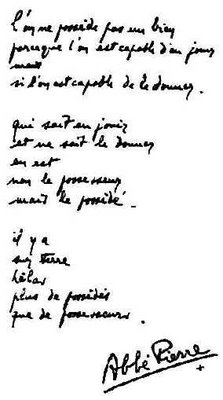 L'on ne possède pas un bien
parceque l'on est capable d'en jouir
mais
si l'on est capable de le donner.
qui sait en jouir
et ne sait le donner
en est
non le possesseur
mais le possédé.
il y a
sur terre
hélas
plus de possédés
que de possesseurs.
Abbé Pierre